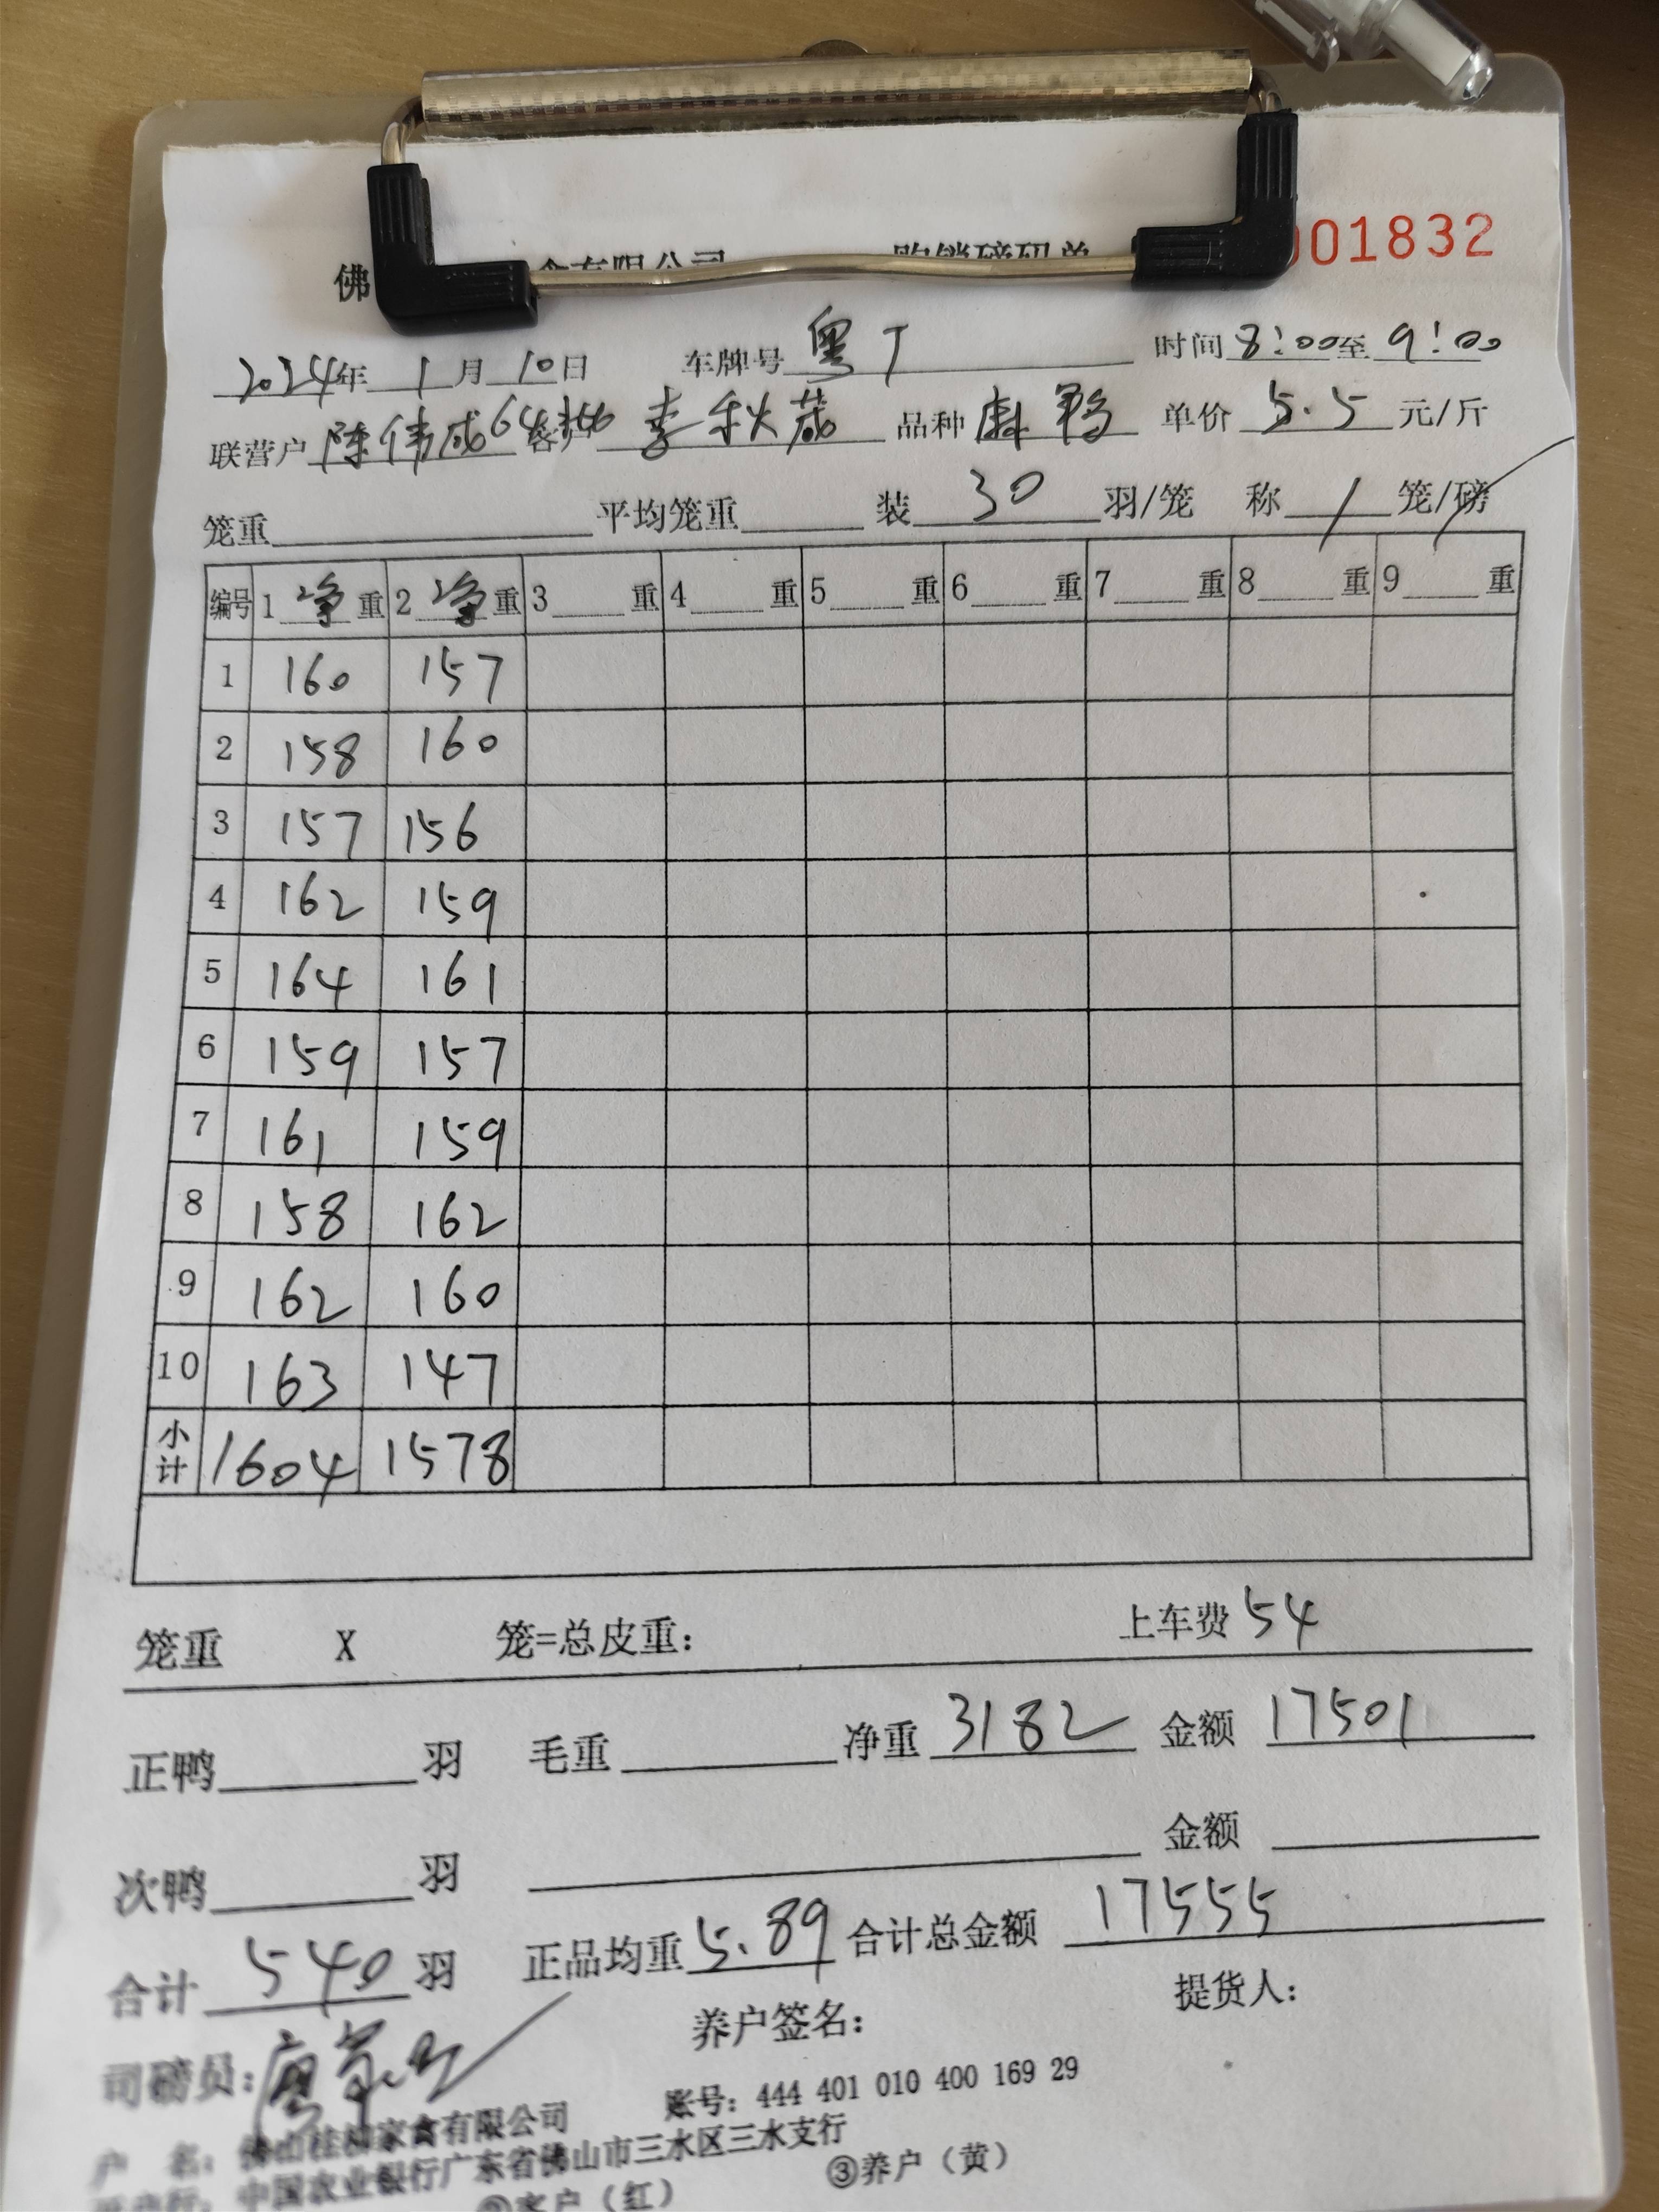 佛 食有限公司 购销磅码单 001832
2024年 1月 10日 车牌号 粤T 时间 8:00至 9:00
联营户 陈伟成 64批 客户 李秋葳 品种 麻鸭 单价 5.5 元/斤
笼重 平均笼重 装 30 羽/笼 称 1 笼/磅
编号 1 净 重 2 净 重 3 重 4 重 5 重 6 重 7 重 8 重 9 重
1 160 157
2 158 160
3 157 156
4 162 159
5 164 161
6 159 157
7 161 159
8 158 162
9 162 160
10 163 147
小计 1604 1578
笼重 X 笼=总皮重： 上车费 54
正鸭 羽 毛重 净重 3182 金额 17501
次鸭 羽 金额
合计 540 羽 正品均重 5.89 合计总金额 17555
司磅员： 养户签名： 提货人：
户 名：佛山桂柳家禽有限公司 账号：444 401 010 400 169 29
中国农业银行广东省佛山市三水区三水支行
②客户（红） ③养户（黄）